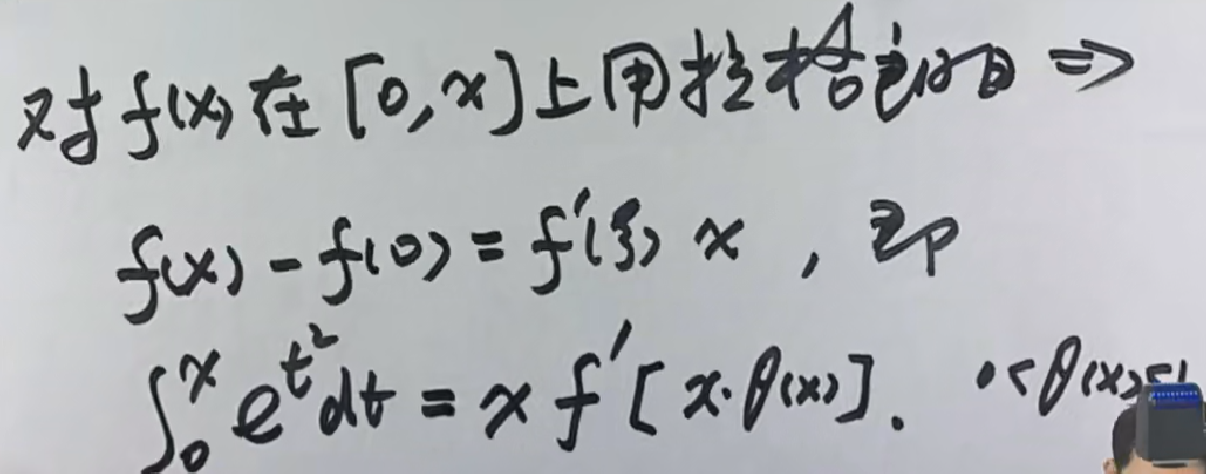 对f(x)在[0,x]上用拉格朗日⇒
f(x)-f(0)=f'(ξ)x,即
∫₀ˣe^{t²}dt=xf'[x·θ(x)]. 0<θ(x)<1